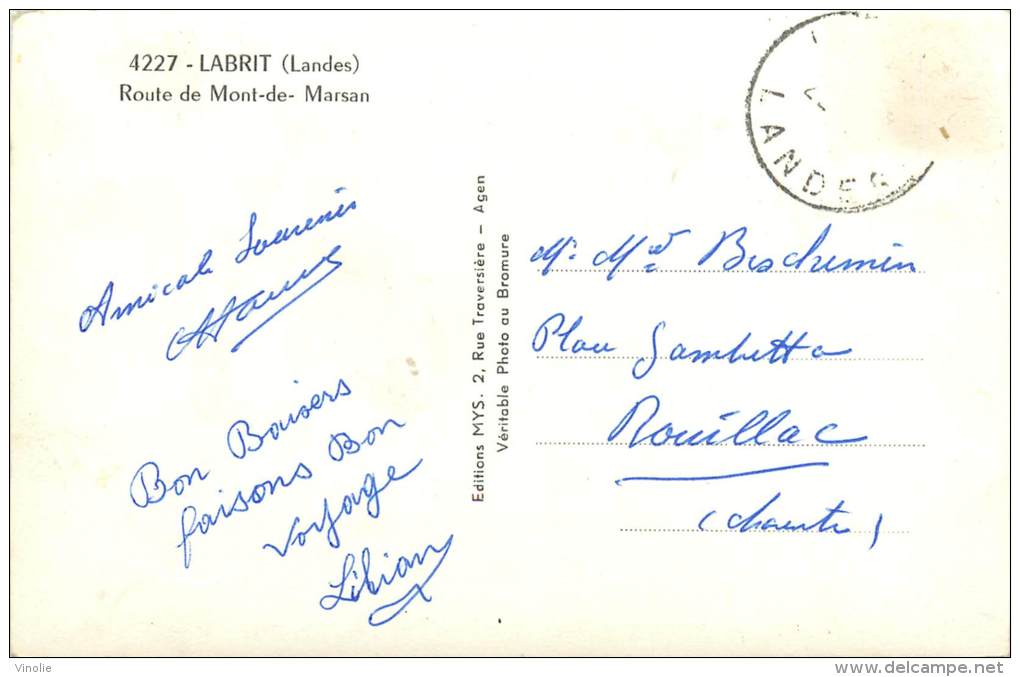 4227 - LABRIT (Landes)
Route de Mont-de- Marsan
LANDES
Amicals Souvenirs
Bon Baisers
faisons Bon
voyage
Lilian
Editions MYS. 2, Rue Traversière - Agen
Véritable Photo au Bromure
Mr Md Beschemin
Place Gambetta
Rouillac
(Charente)
Vinolie
delcampe.net